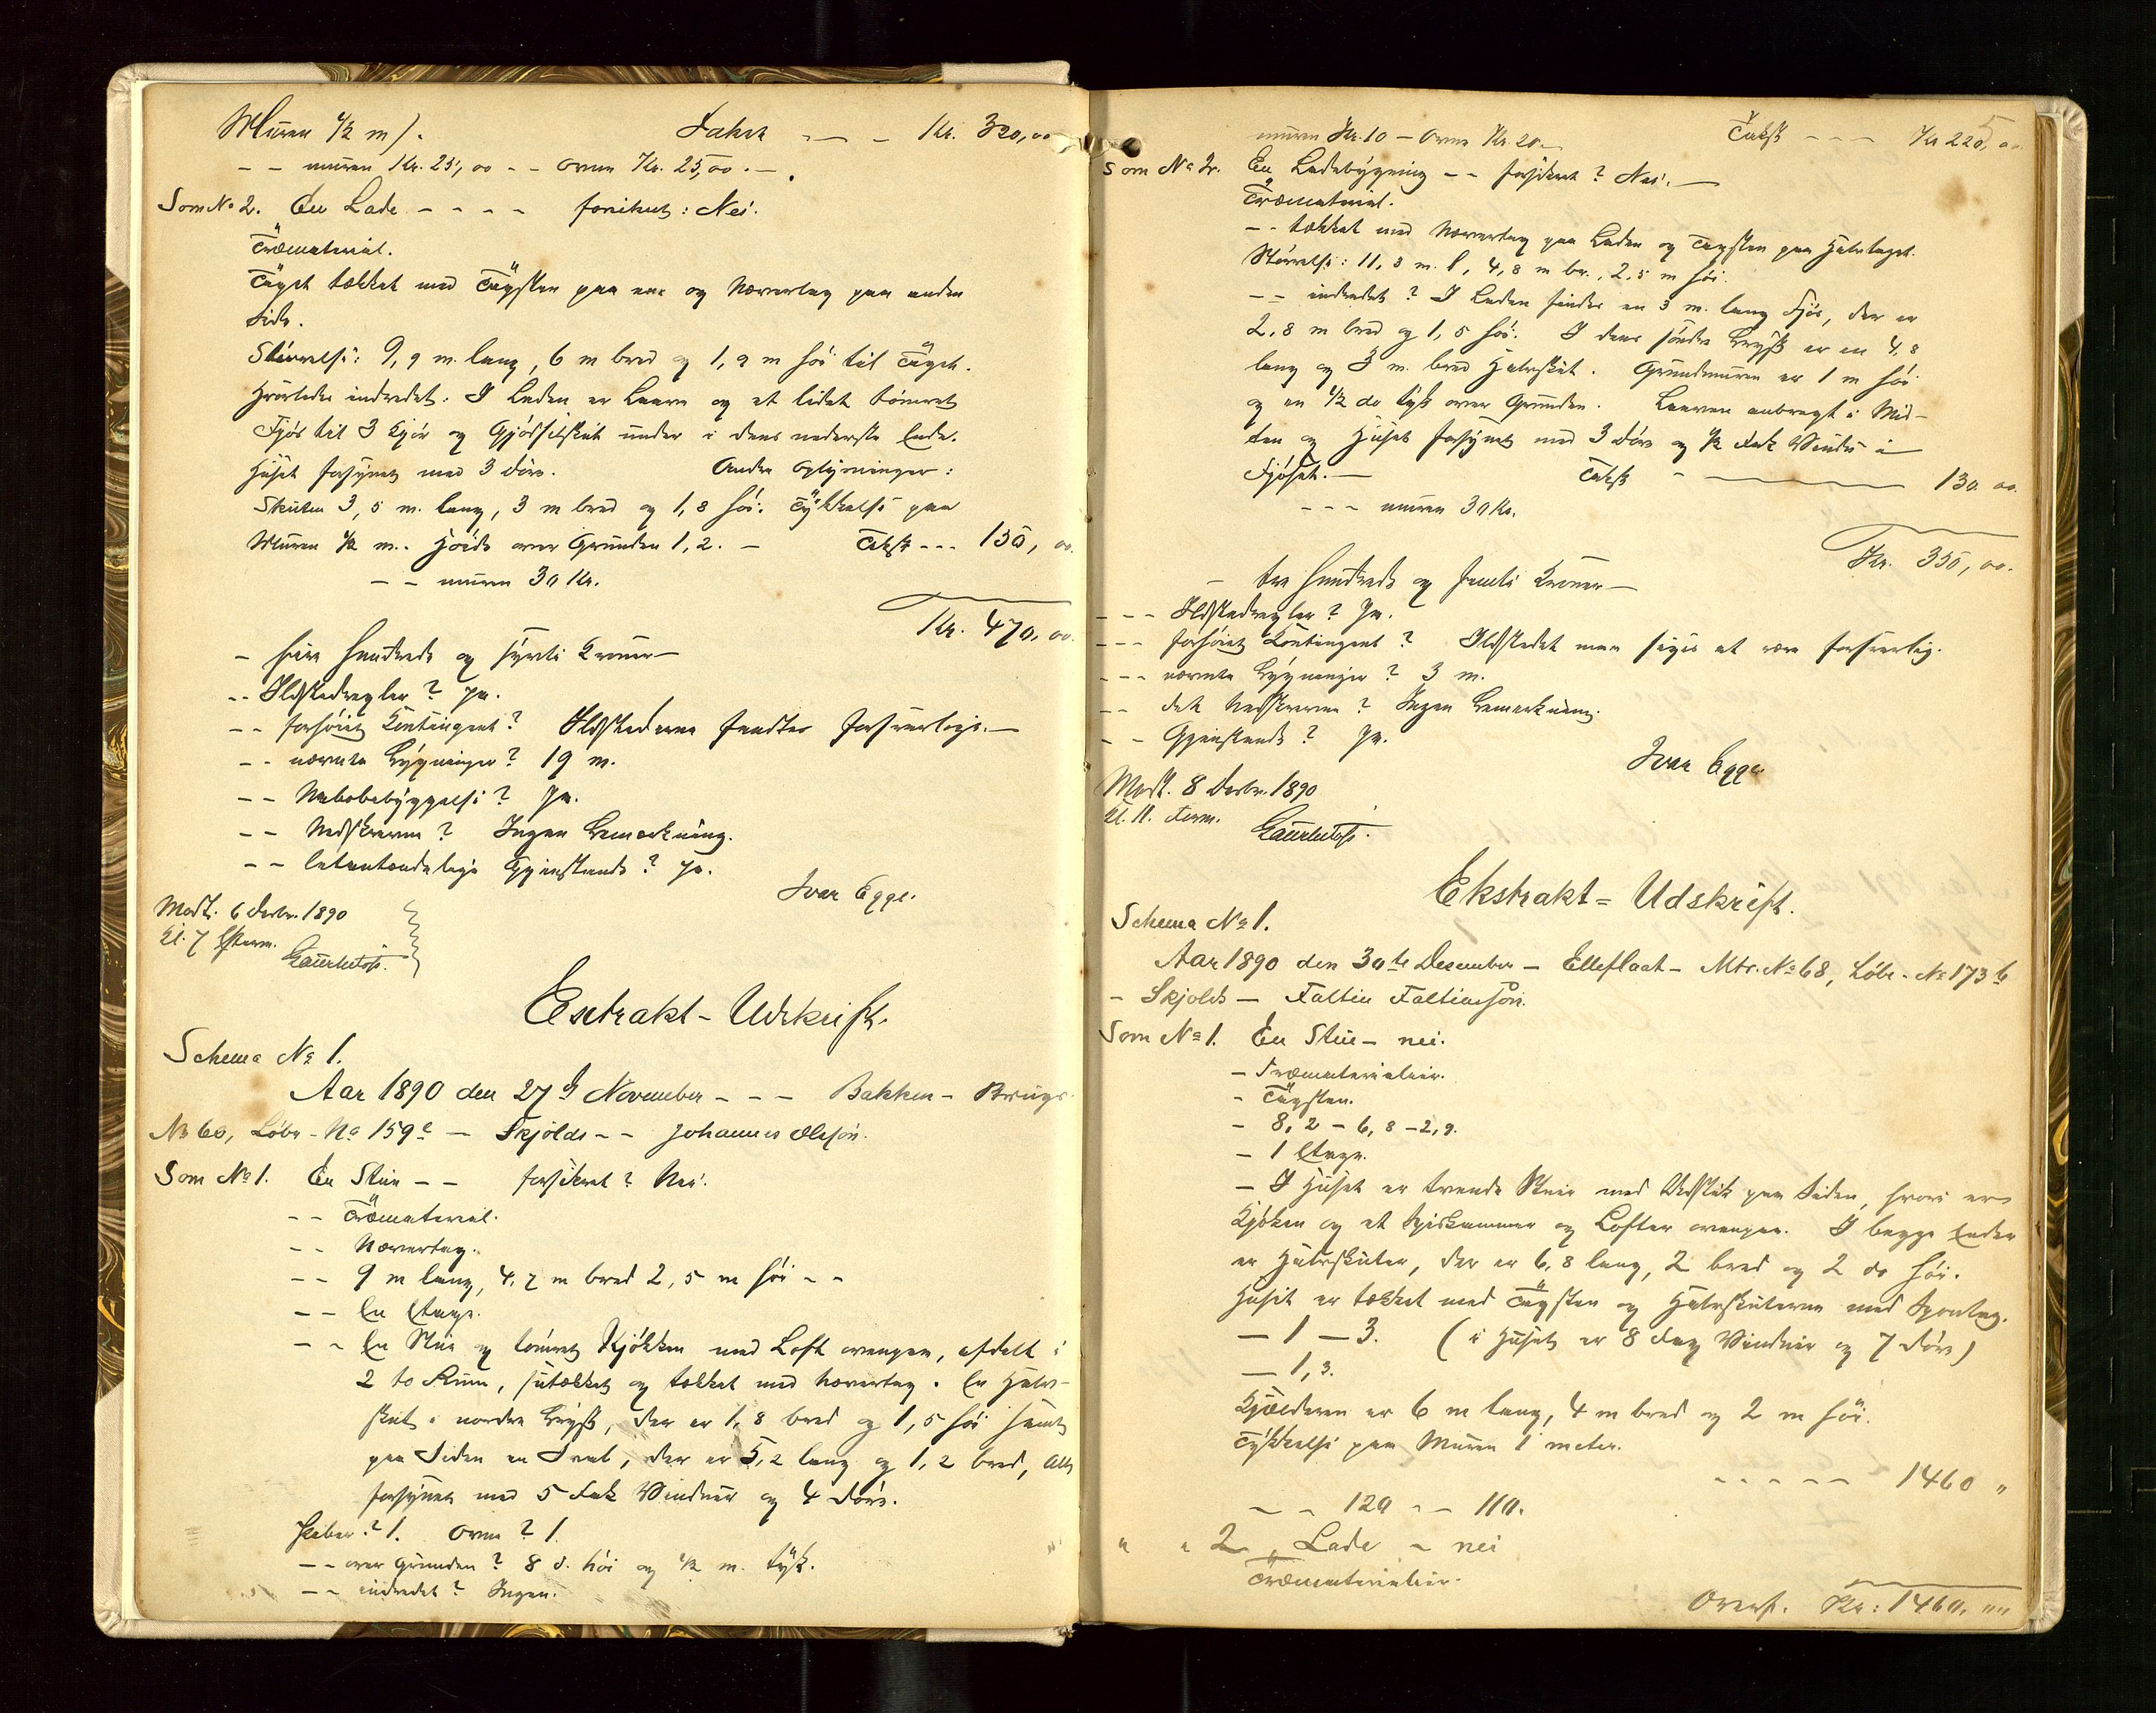 Muren 1/2 m). Takst - - - Kr. 320,00
- - muren Kr. 25,00 - - Ovne Kr. 25,00. -.
Som No 2. En Lade - - - - forsikret: Nei.
Træmaterial.
Taget tækket med Tagsten paa ene og Nævertag paa anden
Side.
Størrelse: 9,9 m. lang, 6 m bred og 1,9 m høi til Taget.
Hvorledes indredet: I Laden er Laave og et lidet tømret
Fjøs til 3 Kjør og Gjødselskut under i dens nederste Ende.
Huset forsynet med 3 Døre. Andre Oplysninger:
Skuten 3,5 m. lang, 3 m bred og 1,8 høi. Tykkelse paa
Muren 1/2 m.. Høide over Grunden 1,2. - Takst - - - 150,00.
- - muren 30 Kr.
Kr. 470,00.
- fire hundrede og sytti Kroner -
- - Ildstedregler? Ja.
- - forhøiet Kontingent? Ildstederne fandtes forsvarlige. -
- - nærmeste Bygninger? 19 m.
- - Nabobebyggelse? Ja.
- - Nedskrevne? Ingen Bemærkning.
- - letantændelige Gjenstande? Ja.
Ivar Egge.
Modt. 6 Decbr. 1890
Kl. 7 Efterm.
Extrakt-Udskrift.
Schema No 1.
Aar 1890 den 27de November - - - Bakken - Brugs-
No 60, Løbe-No 159c - Skjolds - - Johannes Olsøn.
Som No 1. En Stue - - forsikret? Nei.
- - Træmaterial.
- - Nævertag.
- - 9 m lang, 4,7 m bred 2,5 m høi - -
- - En Etage.
- - En Stue og tømret Kjøkken med Loft ovenpaa, afdelt i
2 to Rum, sutækket og tækket med Nævertag. En Halv-
skut i nordre Bryst, der er 1,8 bred og 1,5 høi samt
paa Siden en Sval, der er 5,2 lang og 1,2 bred, Alt
forsynet med 5 Fak Vinduer og 4 Døre.
Piber? 1. Ovne? 1.
- - over Grunden? 8 d. høi og 1/2 m. tyk.
- - indredet? Ingen.
muren Kr. 10 - Ovne Kr. 20. - Takst - - - Kr 220,00.
Som No 2. En Ladebygning - - forsikret? Nei. -
Træmaterial.
- - tækket med Nævertag paa Laden og Tagsten paa Halvtaget.
Størrelse: 11,3 m. l, 4,8 m br., 2,5 m høi.
- - indredet? I Laden findes en 3 m. lang Fjøs, der er
2,8 m bred og 1,5 høi. I dens søndre Bryst er en 4,8
lang og 3 m. bred Halvskut. Grundmuren er 1 m høi
og en 1/2 do tyk over Grunden. Laaven anbragt i Mid-
ten og Huset forsynet med 3 Døre og 1/2 Fak Vindu i
Fjøset. - Takst - 130.00.
- - - muren 30 Kr.
Kr. 350,00.
- tre hundrede og femti Kroner -
- - - Ildstedregler? Ja.
- - - forhøiet Kontingent? Ildstedet maa siges at være forsvarlig.
- - - nærmeste Bygninger? 3 m.
- - det Nedskrevne? Ingen Bemærkning.
- - Gjenstande? Ja.
Ivar Egge.
Modt. 8 Decbr. 1890
Kl. 11. Form.
Ekstrakt=Udskrift.
Schema No 1.
Aar 1890 den 30te December - Elleflaat - Mtr. No 68, Løbe-No 173b
- Skjolds - Faltin Faltinsøn.
Som No 1. En Stue - nei.
- Træmaterialier.
- Tagsten.
- 8,2 - 6,8 - 2,9.
- 1 Etage.
- I Huset er tvende Stuer med Udskut paa Siden, hvori er
Kjøken og et Spiskammer og Lofter ovenpaa. I begge Ender
er Halvskuter, der er 6,8 lang, 2 bred og 2 do høi.
Huset er tækket med Tagsten og Halvskuterne med Spontag.
- 1 - 3. (i Huset er 8 Fag Vinduer og 7 Døre)
- 1,3.
Kjælderen er 6 m lang, 4 m bred og 2 m høi.
Tykkelse paa Muren 1 meter.
- - - - - 1460 "
- - 120 - - 110.
" " 2 " Lade - nei
Træmaterialier.
Overf. Kr: 1460. ""